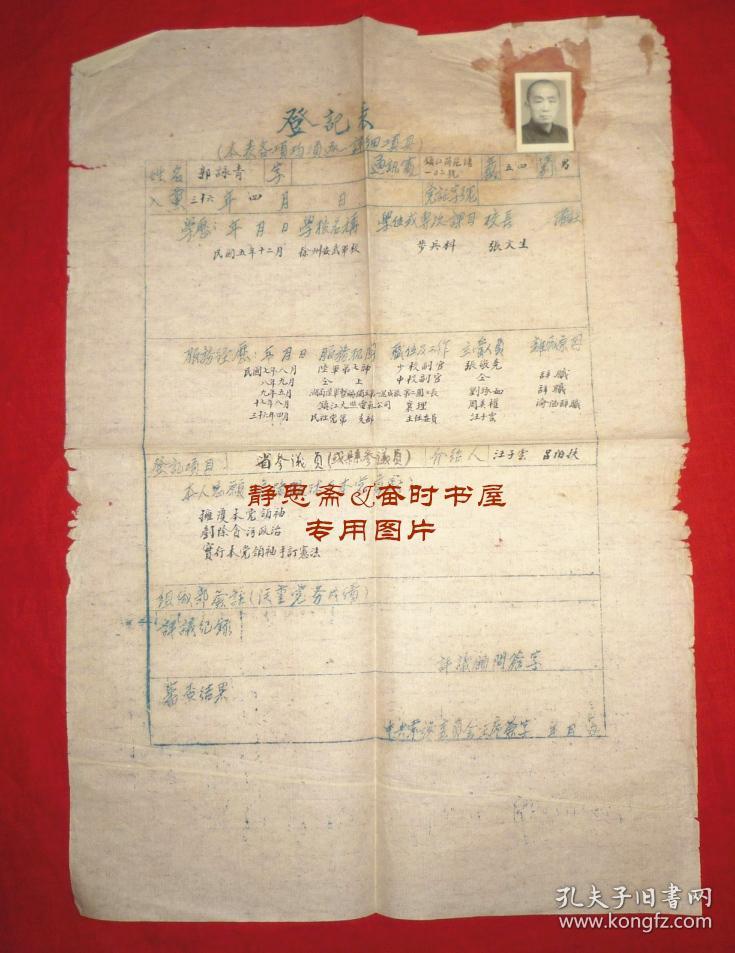 登記表
(本表各項均須逐一詳細填具)
姓名 郭詠青 字 通訊處 鎮江 一〇二號 歲 五四 男
入黨 三十六年四月 日 黨証字號
學歷: 年月日 學校名稱 學位或專攻課目 校長
民國五年十二月 徐州安武軍校 步兵科 張文生
服務經歷: 年月日 服務機關 職位及工作 主管人員 離職原因
民國七年八月 陸軍第七師 少校副官 張敬堯
八年九月 仝上 中校副官 仝 辭職
九年五月 劉 辭職
十七年八月 鎮江大照電氣公司 襄理 周 辭職
三十六年四月 民社黨第 支部 主任委員 汪子雲
登記項目: 省參議員(或縣參議員) 介紹人 汪子雲 呂伯扶
本人志願
擁護本黨領袖
剷除貪污政治
實行本黨領袖手訂憲法
組織部審註(注重黨勞成績)
評議紀錄
評議顧問簽字
審查結果
委員會主席簽字 年 月 日
静思斋&奋时书屋
专用图片
孔夫子旧书网
www.kongfz.com